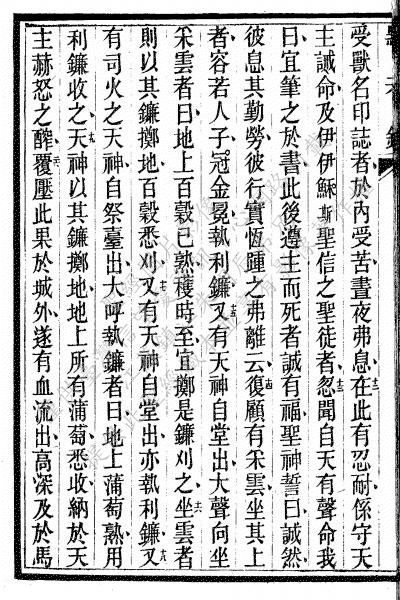 受獸名印誌者於內受苦晝夜弗息在此有忍耐係守天
主誡命及伊伊穌斯聖信之聖徒者忽聞自天有聲命我
曰宜筆之於書此後遵主而死者誠有福聖神誓曰誠然
彼息其勤勞彼行實恆踵之弗離云復顧有釆雲坐其上
者容若人子冠金冕執利鐮又有天神自堂出大聲向坐
釆雲者曰地上百穀已熟穫時至宜擲是鐮刈之坐雲者
則以其鐮擲地百穀悉刈又有天神自堂出亦執利鐮又
有司火之天神自祭臺出大呼執鐮者曰地上蒲萄熟用
利鐮收之天神以其鐮擲地地上所有蒲萄悉收納於天
主赫怒之醡覆壓此果於城外遂有血流出高深及於馬